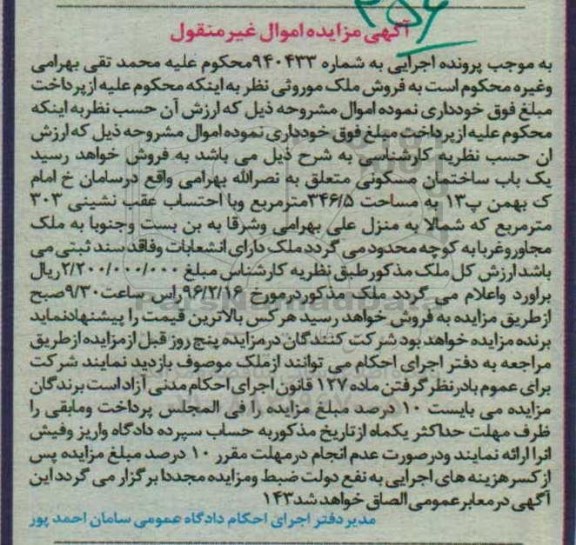 ۳۵۶
آگهی مزایده اموال غیر منقول
به موجب پرونده اجرایی به شماره ۹۴۰۴۳۳محکوم علیه محمد تقی بهرامی
وغیره محکوم است به فروش ملک موروثی نظر به اینکه محکوم علیه از پرداخت
مبلغ فوق خودداری نموده اموال مشروحه ذیل که ارزش آن حسب نظر به اینکه
محکوم علیه از پرداخت مبلغ فوق خودداری نموده اموال مشروحه ذیل که ارزش
ان حسب نظریه کارشناسی به شرح ذیل می باشد به فروش خواهد رسید
یک باب ساختمان مسکونی متعلق به نصرالله بهرامی واقع درسامان خ امام
ک بهمن پ۱۳ به مساحت ۳۴۶/۵مترمربع وبا احتساب عقب نشینی ۳۰۳
مترمربع که شمالا به منزل علی بهرامی وشرقا به بن بست وجنوبا به ملک
مجاور وغربا به کوچه محدود می گردد ملک دارای انشعابات وفاقد سند ثبتی می
باشد ارزش کل ملک مذکور طبق نظریه کارشناس مبلغ ۲/۲۰۰/۰۰۰/۰۰۰ریال
براورد واعلام می گردد ملک مذکور درمورخ ۹۶/۲/۱۶راس ساعت۹/۳۰صبح
ازطریق مزایده به فروش خواهد رسید هر کس بالاترین قیمت را پیشنهاد نماید
برنده مزایده خواهد بود شرکت کنندگان در مزایده پنج روز قبل از مزایده از طریق
مراجعه به دفتر اجرای احکام می توانند از ملک موصوف بازدید نمایند شرکت
برای عموم بادر نظر گرفتن ماده ۱۲۷ قانون اجرای احکام مدنی آزاد است برندگان
مزایده می بایست ۱۰ درصد مبلغ مزایده را فی المجلس پرداخت ومابقی را
ظرف مهلت حداکثر یکماه از تاریخ مذکور به حساب سپرده دادگاه واریز وفیش
انرا ارائه نمایند ودرصورت عدم انجام در مهلت مقرر ۱۰ درصد مبلغ مزایده پس
از کسر هزینه های اجرایی به نفع دولت ضبط ومزایده مجددا برگزار می گردد این
آگهی در معابر عمومی الصاق خواهد شد۱۴۳
مدیر دفتر اجرای احکام دادگاه عمومی سامان احمد پور